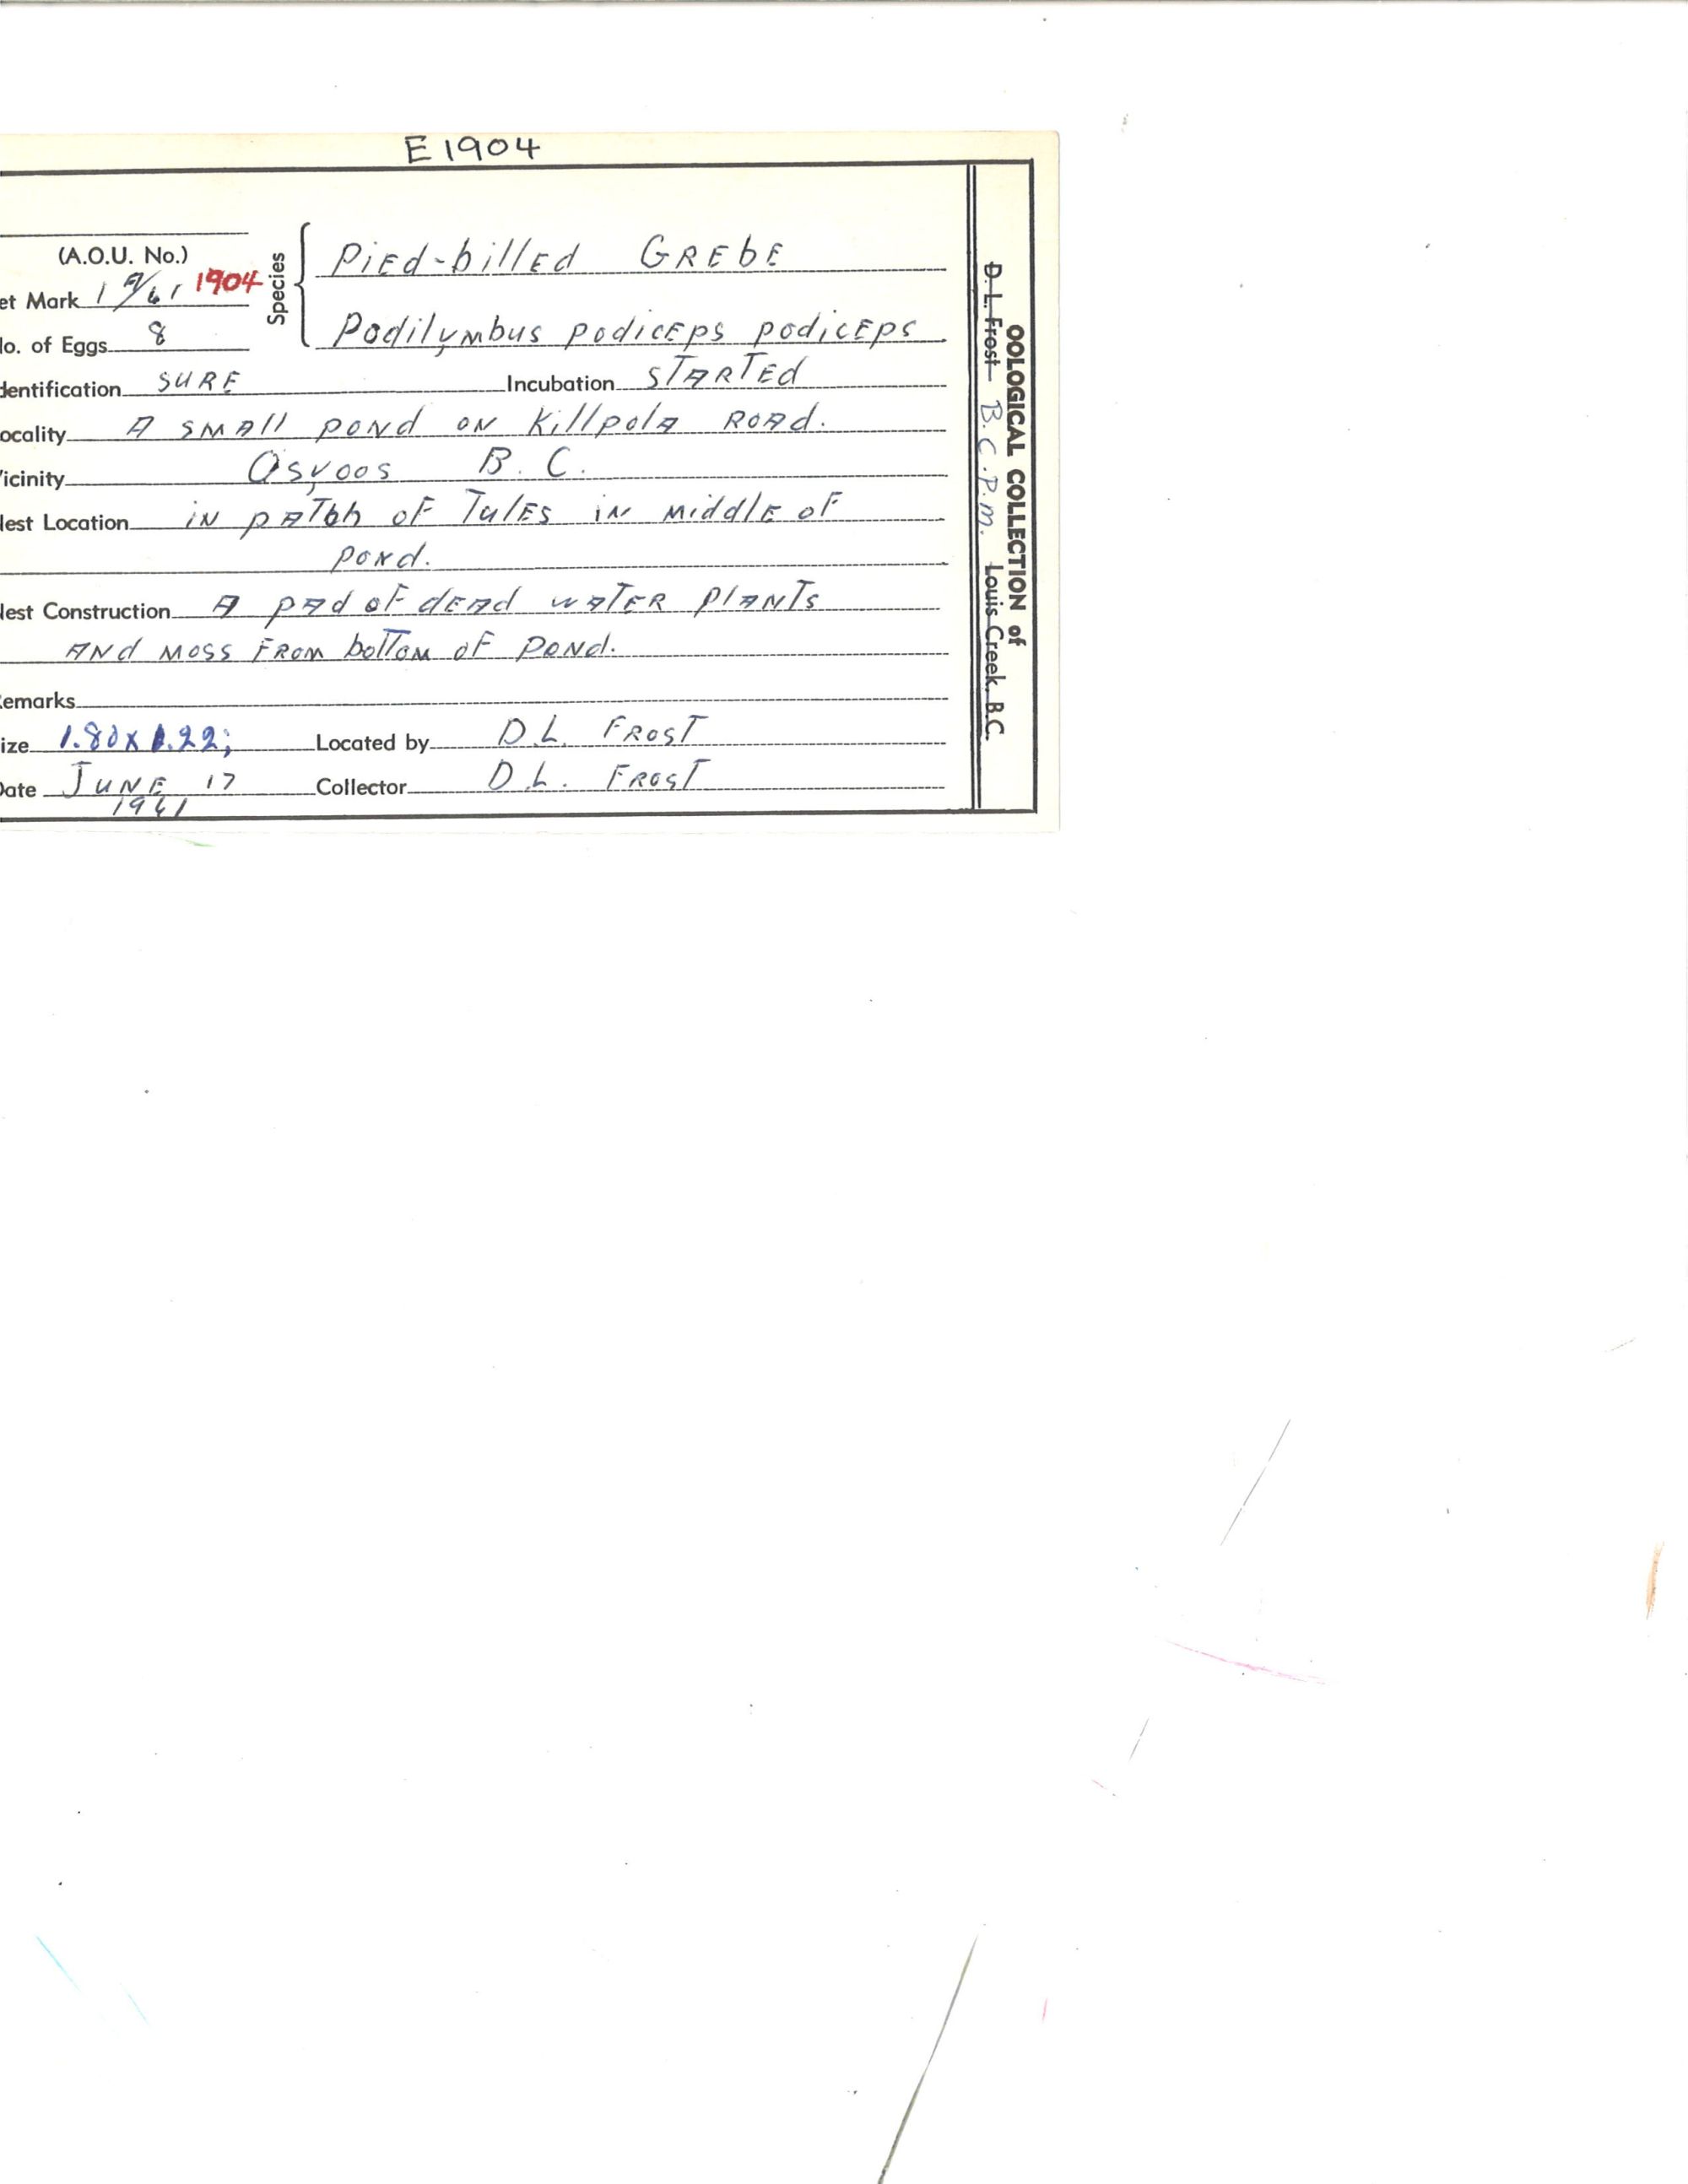 E1904
(A.O.U. No.)
et Mark 1 A/61 1904
Species
Pied-billed GREbE
Podilymbus podicEps podicEps
lo. of Eggs 8
dentification SURE Incubation STARTEd
ocality A SMAll pond on Killpola ROAd.
icinity Osyoos B. C.
lest Location in pATbh oF TulEs in MiddlE oF
pond.
lest Construction A pAd oF dEAd wATER plANTs
ANd Moss FRom boTTom oF pond.
emarks
ize 1.80 x 1.22; Located by D.L. FRosT
ate JUNE 17 Collector D.L. FRosT
1961
OOLOGICAL COLLECTION of
D. L. Frost B.C.P.M. Louis Creek, B.C.